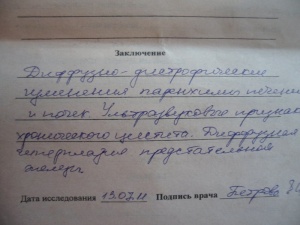 Заключение
Диффузно-дистрофические
изменения паренхимы печени
и почек. Ультразвуковые признаки
хронического цистита. Диффузная
гиперплазия предстательной
железы
Дата исследования 13.07.11 Подпись врача Петрова